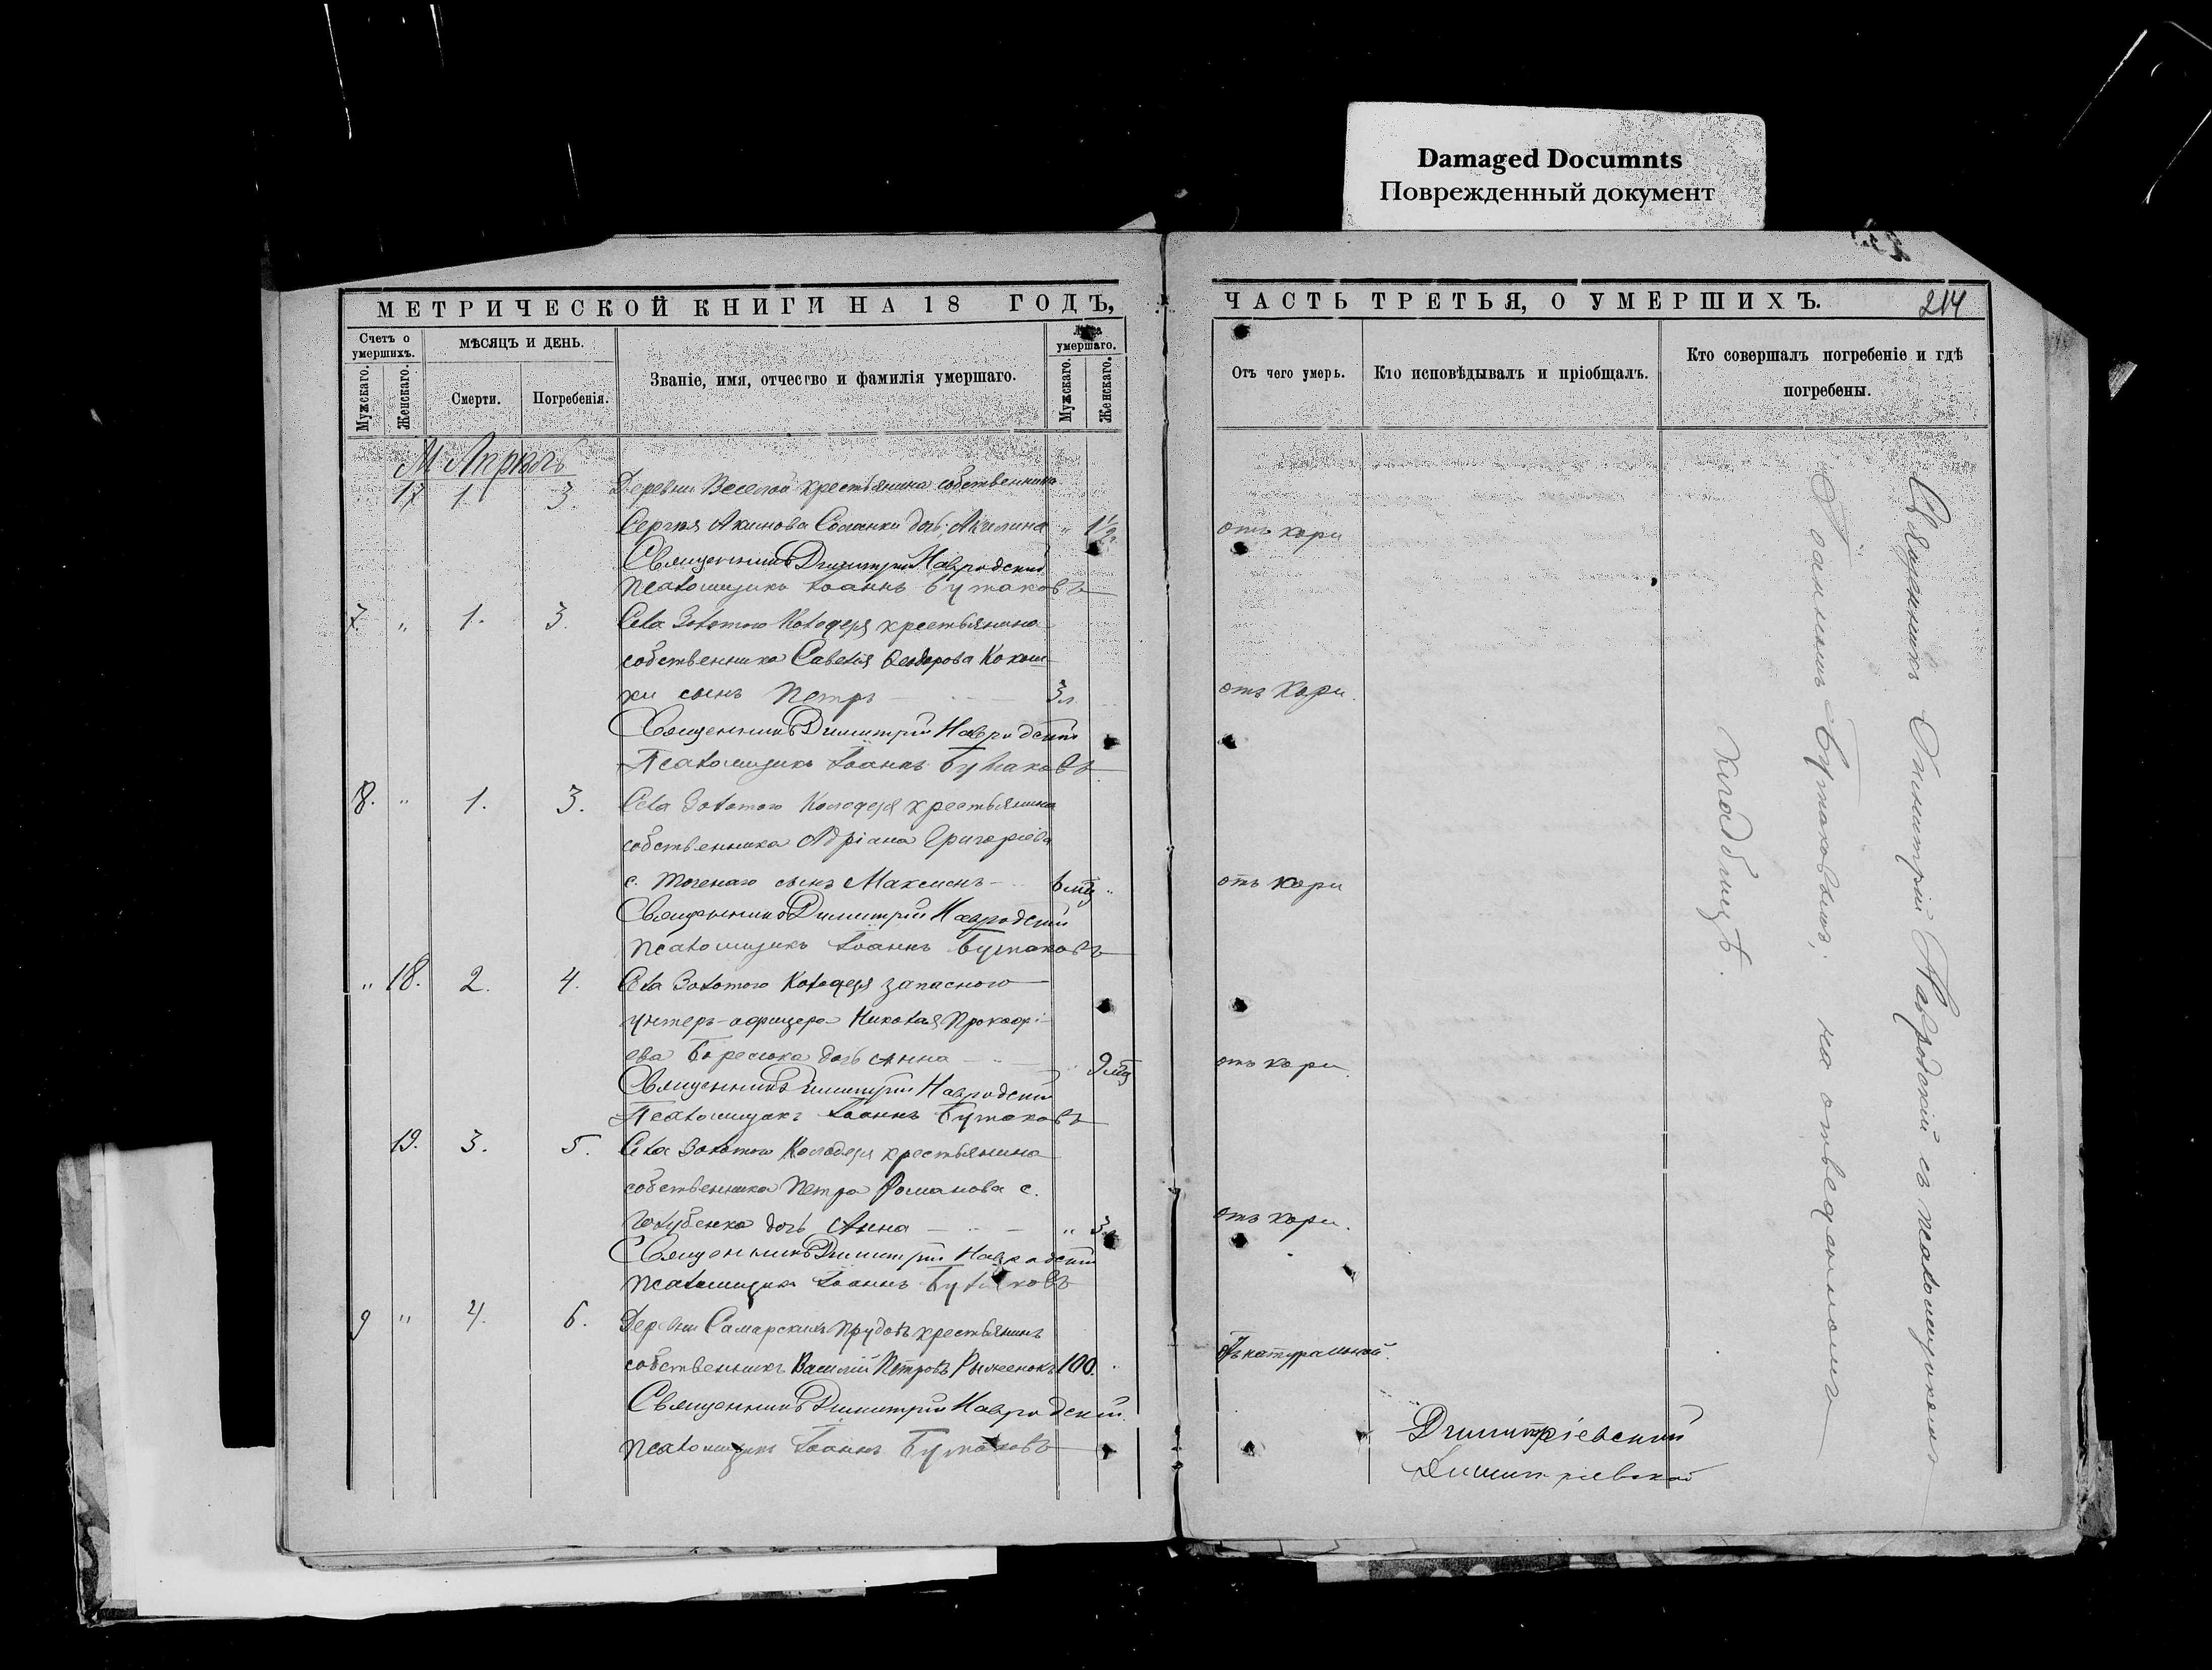 Damaged Documnts
Поврежденный документ
МЕТРИЧЕСКОЙ КНИГИ НА 18 ГОДЪ,
Счетъ о умершихъ.
МѢСЯЦЪ И ДЕНЬ.
Званіе, имя, отчество и фамилія умершаго.
Лѣта умершаго.
Мужскаго.
Женскаго.
Смерти.
Погребенія.
Мужскаго.
Женскаго.
М Апрѣль
17 1. 3. Деревни Веселой крестьянина собственника
Сергѣя Акимова Соланки дочь Акилина " 1 1/2 г.
Священникъ Димитрій Навродскій
Псаломщикъ Іоаннъ Бутаковъ
7. " 1. 3. Села Золотого Колодезя крестьянина
собственника Савелія Ѳеодорова Кокош-
ки сынъ Петръ 3 л.
Священникъ Димитрій Навродскій
Псаломщикъ Іоаннъ Бутаковъ
8. " 1. 3. Села Золотого Колодезя крестьянина
собственника Адріана Григоріева
с. Точенаго сынъ Максимъ 6 мц "
Священникъ Димитрій Навродскій
Псаломщикъ Іоаннъ Бутаковъ
" 18. 2. 4. Села Золотого Колодезя запасного
унтеръ-офицера Николая Прокофі-
ева дочь Анна 9 мц
Священникъ Димитрій Навродскій
Псаломщикъ Іоаннъ Бутаковъ
19. 3. 5. Села Золотого Колодезя крестьянина
собственника Петра Романова с.
Голубенка дочь Анна " 3 л.
Священникъ Димитрій Навродскій
Псаломщикъ Іоаннъ Бутаковъ
9 " 4. 6. Деревни Самарскихъ Прудовъ крестьянинъ
собственникъ Василій Петровъ Рыженокъ 100.
Священникъ Димитрій Навродскій.
Псаломщикъ Іоаннъ Бутаковъ
ЧАСТЬ ТРЕТЬЯ, О УМЕРШИХЪ.
214
Отъ чего умеръ.
Кто исповѣдывалъ и пріобщалъ.
Кто совершалъ погребеніе и гдѣ погребены.
отъ кори
отъ кори.
отъ кори
отъ кори.
отъ кори.
отъ натуральной.
Священникъ Димитрій Навродскій съ псаломщикомъ
Іоанномъ Бутаковымъ, на отведенномъ
кладбищѣ.
Димитріевский
Димитріевской